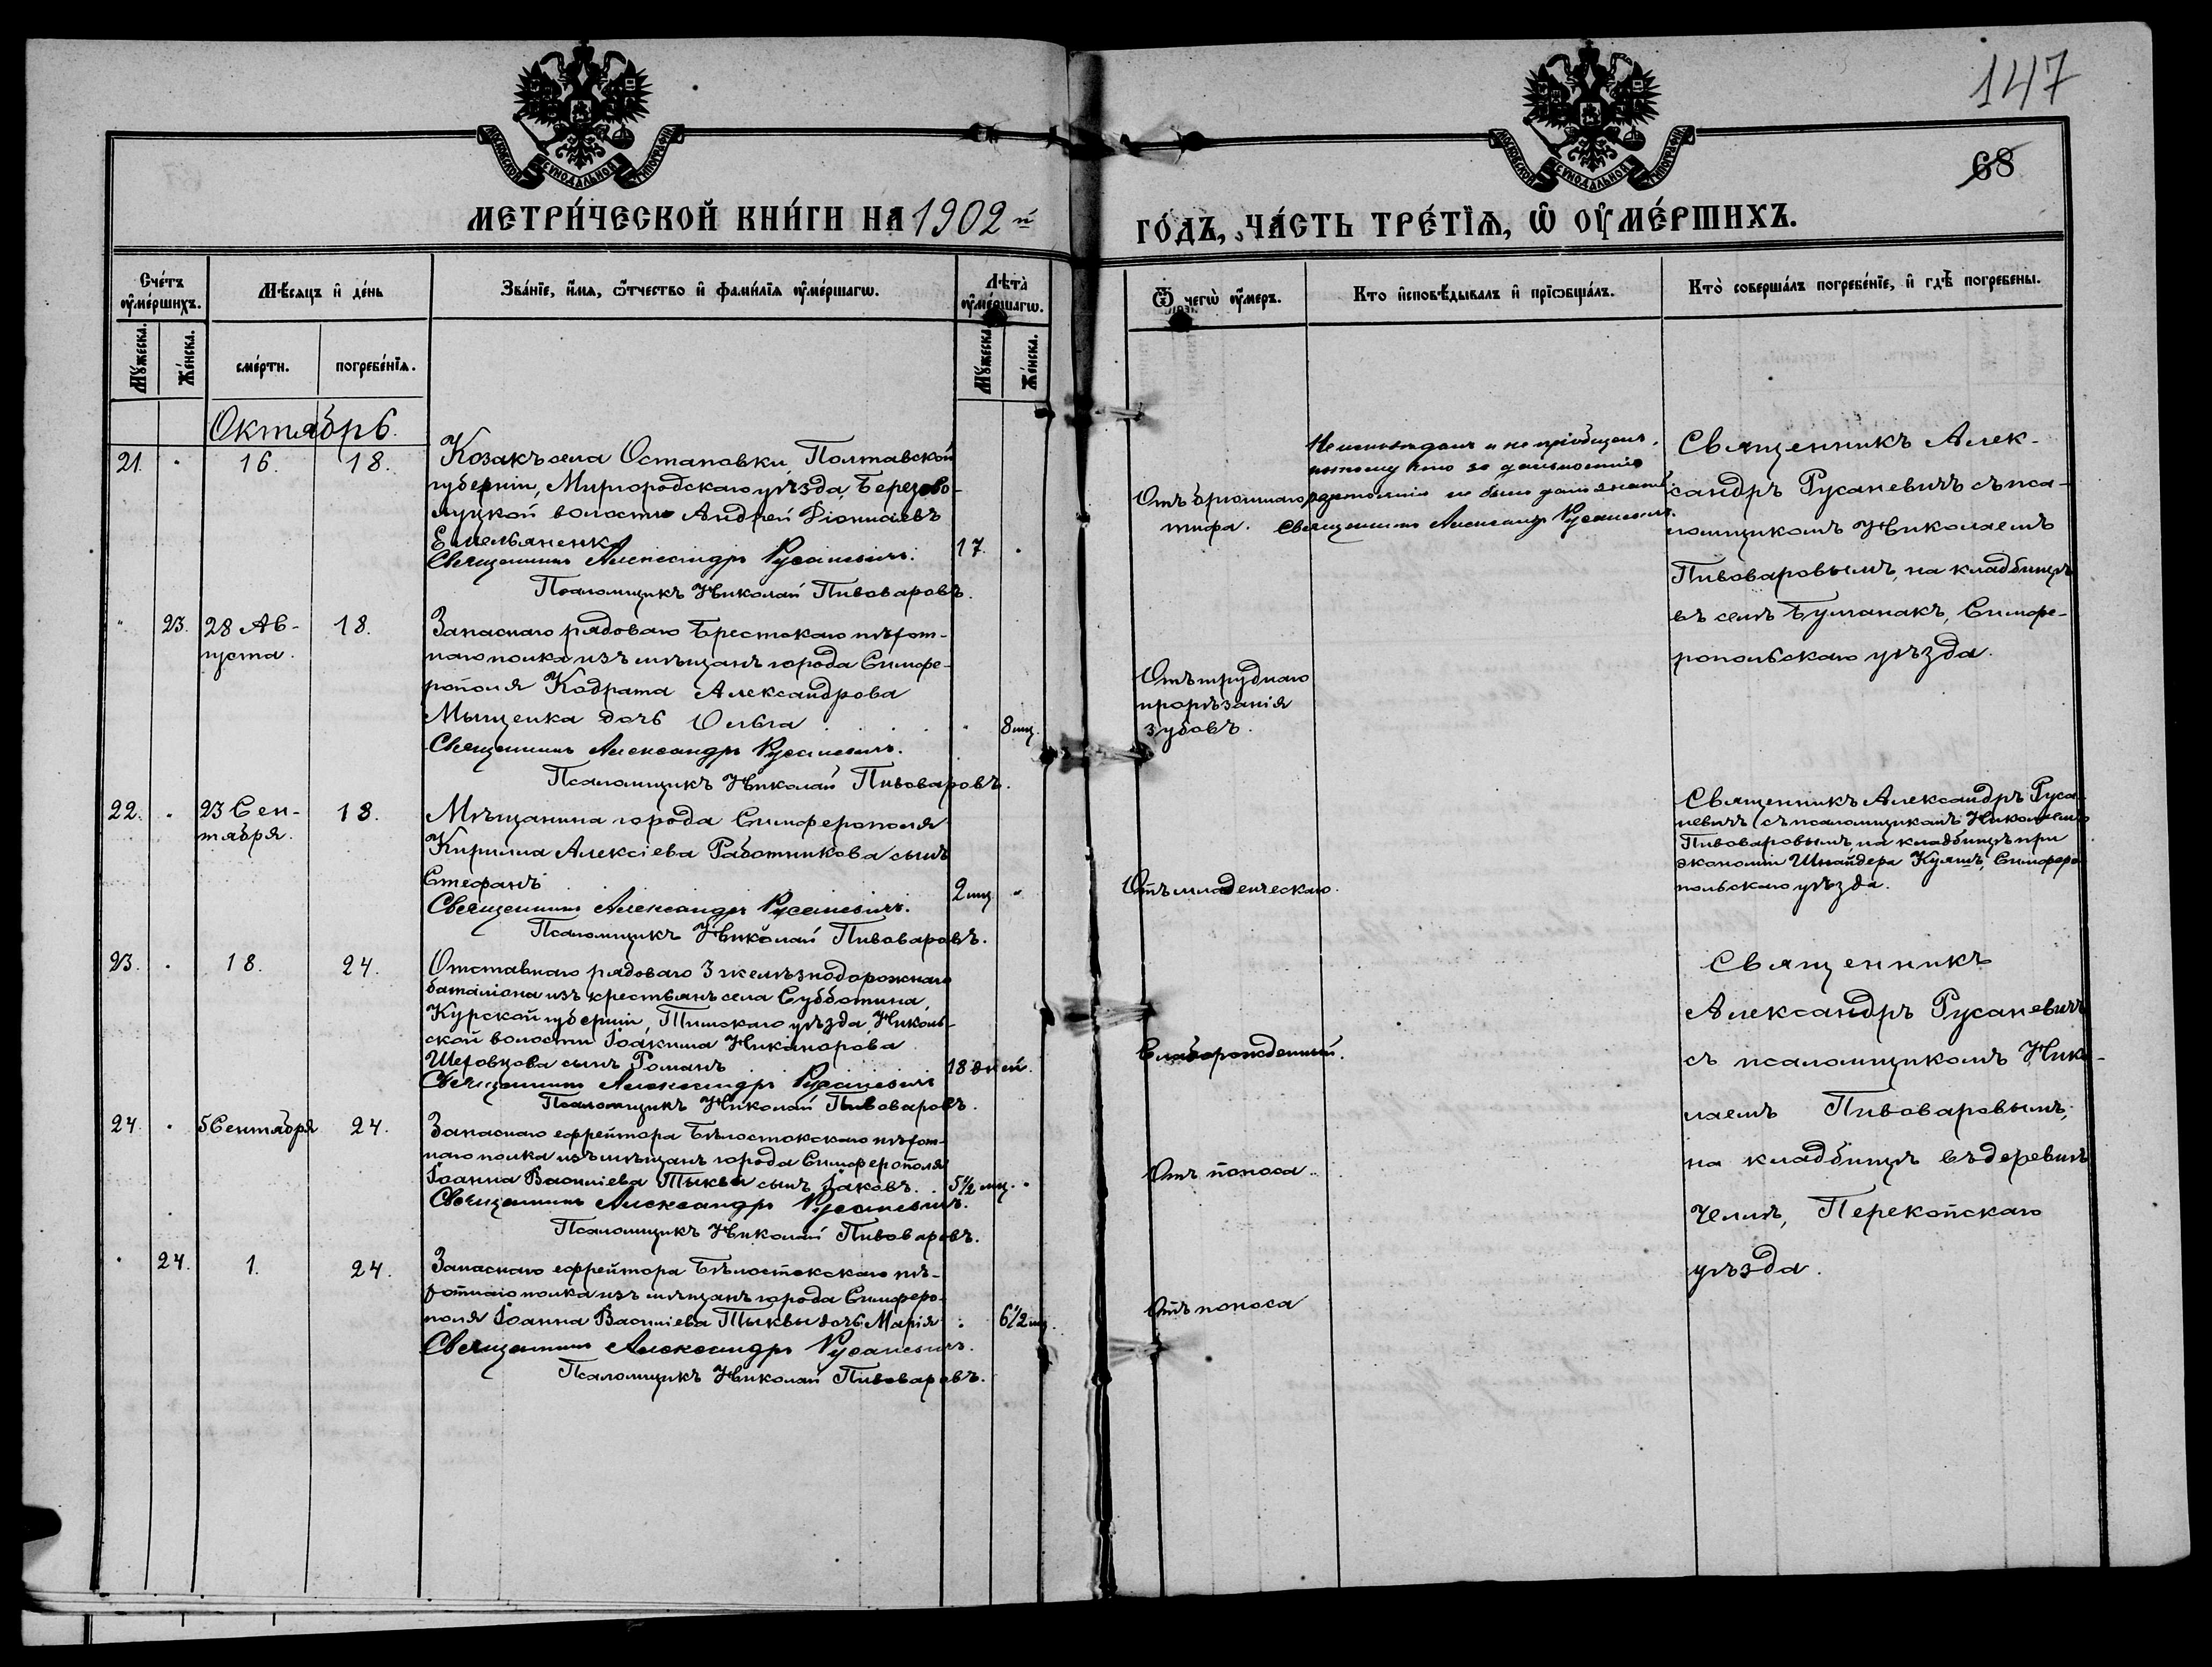 147
68
МОСКОВСКОЙ СѴНОДАЛЬНОЙ ТИПОГРАФІИ
МОСКОВСКОЙ СѴНОДАЛЬНОЙ ТИПОГРАФІИ
МЕТРИ́ЧЕСКОЙ КНИ́ГИ НА 1902 й
ГО́ДЪ, ЧА́СТЬ ТРЕ́ТЇѦ, Ѡ҆ ОУ҆МЕ́РШИХЪ.
Сче́тъ оу҆ме́ршихъ.
Мѣ́сяцъ и҆ де́нь
Зва́нїе, и҆́мя, ѻ҆́тчество и҆ фами́лїя оу҆ме́ршагѡ.
Лѣта̀ оу҆ме́ршагѡ.
Ѿ чегѡ̀ оу҆́меръ.
Кто и҆сповѣ́дывалъ и҆ прїѡбща́лъ.
Кто̀ соверша́лъ погребе́нїе, и҆ гдѣ̀ погребены.
Му́жеска.
Же́нска.
сме́рти.
погребе́нїя.
Му́жеска.
Же́нска.
Октябрь.
21.
16.
18.
Козакъ села Остаповки, Полтавской
губерніи, Миргородскаго уѣзда, Березово-
луцкой волости Андрей Діонисіевъ
Емельяненко
17.
Священникъ Александръ Русаневичъ.
Псаломщикъ Николай Пивоваровъ.
Отъ брюшнаго
тифа.
Неисповѣданъ и не пріобщенъ,
потому что за дальностію
разстоянія не было дано знать.
Священникъ Александръ Русаневичъ.
Священникъ Алек-
сандръ Русаневичъ съ пса-
ломщикомъ Николаемъ
Пивоваровымъ, на кладбищѣ
въ селѣ Бумакакъ, Симфе-
ропольскаго уѣзда.
23.
28 Ав-
густа.
18.
Запаснаго рядоваго Брестскаго пѣхот-
наго полка изъ мѣщанъ города Симфе-
рополя Кодрата Александрова
Мыценка дочь Ольга
8 мц.
Священникъ Александръ Русаневичъ.
Псаломщикъ Николай Пивоваровъ.
Отъ труднаго
прорѣзанія
зубовъ.
22.
23 Сен-
тября.
18.
Мѣщанина города Симферополя
Кирилла Алексіева Работникова сынъ
Стефанъ
2 мц.
Священникъ Александръ Русаневичъ.
Псаломщикъ Николай Пивоваровъ.
Отъ младенческаго.
Священникъ Александръ Руса-
невичъ съ псаломщикомъ Николаемъ
Пивоваровымъ, на кладбищѣ при
экономіи Шнайдера Куяшъ, Симферо-
польскаго уѣзда.
23.
18.
24.
Отставнаго рядоваго 3 желѣзнодорожнаго
баталіона изъ крестьянъ села Субботина,
Курской губерніи, Тимскаго уѣзда, Николь-
ской волости Іоакима Никанорова
Шеховцова сынъ Романъ
18 дней.
Священникъ Александръ Русаневичъ
Псаломщикъ Николай Пивоваровъ.
Слаборожденный.
Священникъ
Александръ Русаневичъ
съ псаломщикомъ Нико-
лаемъ Пивоваровымъ,
на кладбищѣ въ деревнѣ
Челлѣ, Перекопскаго
уѣзда.
24.
5 Сентября
24.
Запаснаго ефрейтора Бѣлостокскаго пѣхот-
наго полка изъ мѣщанъ города Симферополя
Іоанна Василіева Тыквы сынъ Іаковъ.
5 1/2 мц.
Священникъ Александръ Русаневичъ.
Псаломщикъ Николай Пивоваровъ.
Отъ поноса.
24.
1.
24.
Запаснаго ефрейтора Бѣлостокскаго пѣ-
хотнаго полка изъ мѣщанъ города Симферо-
поля Іоанна Василіева Тыквы дочь Марія
6 1/2 мц.
Священникъ Александръ Русаневичъ.
Псаломщикъ Николай Пивоваровъ.
Отъ поноса